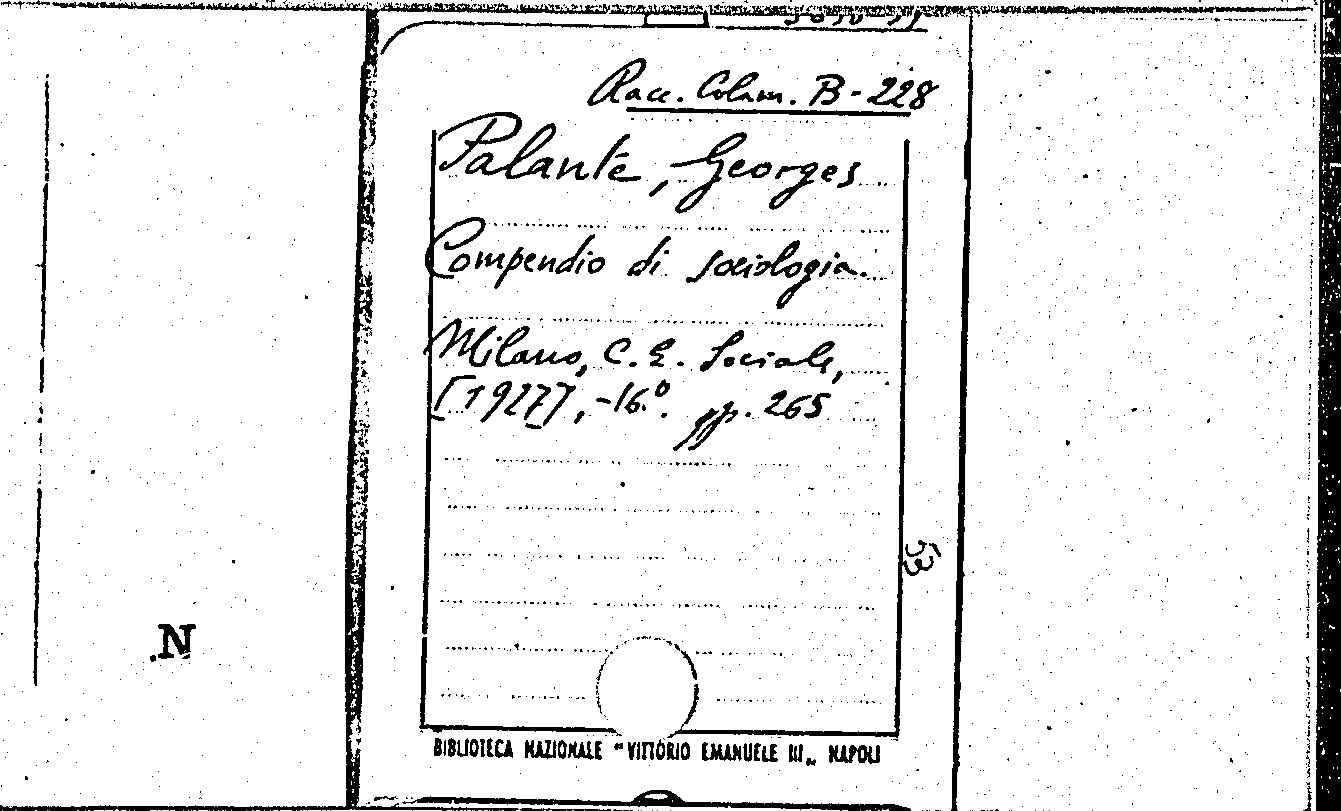 Racc. Colam. B-228
Palante, Georges
Compendio di sociologia.
Milano, C. E. Sociale,
[1927], -16.º pp. 265
53
.N
BIBLIOTECA NAZIONALE "VITTORIO EMANUELE III„ NAPOLI